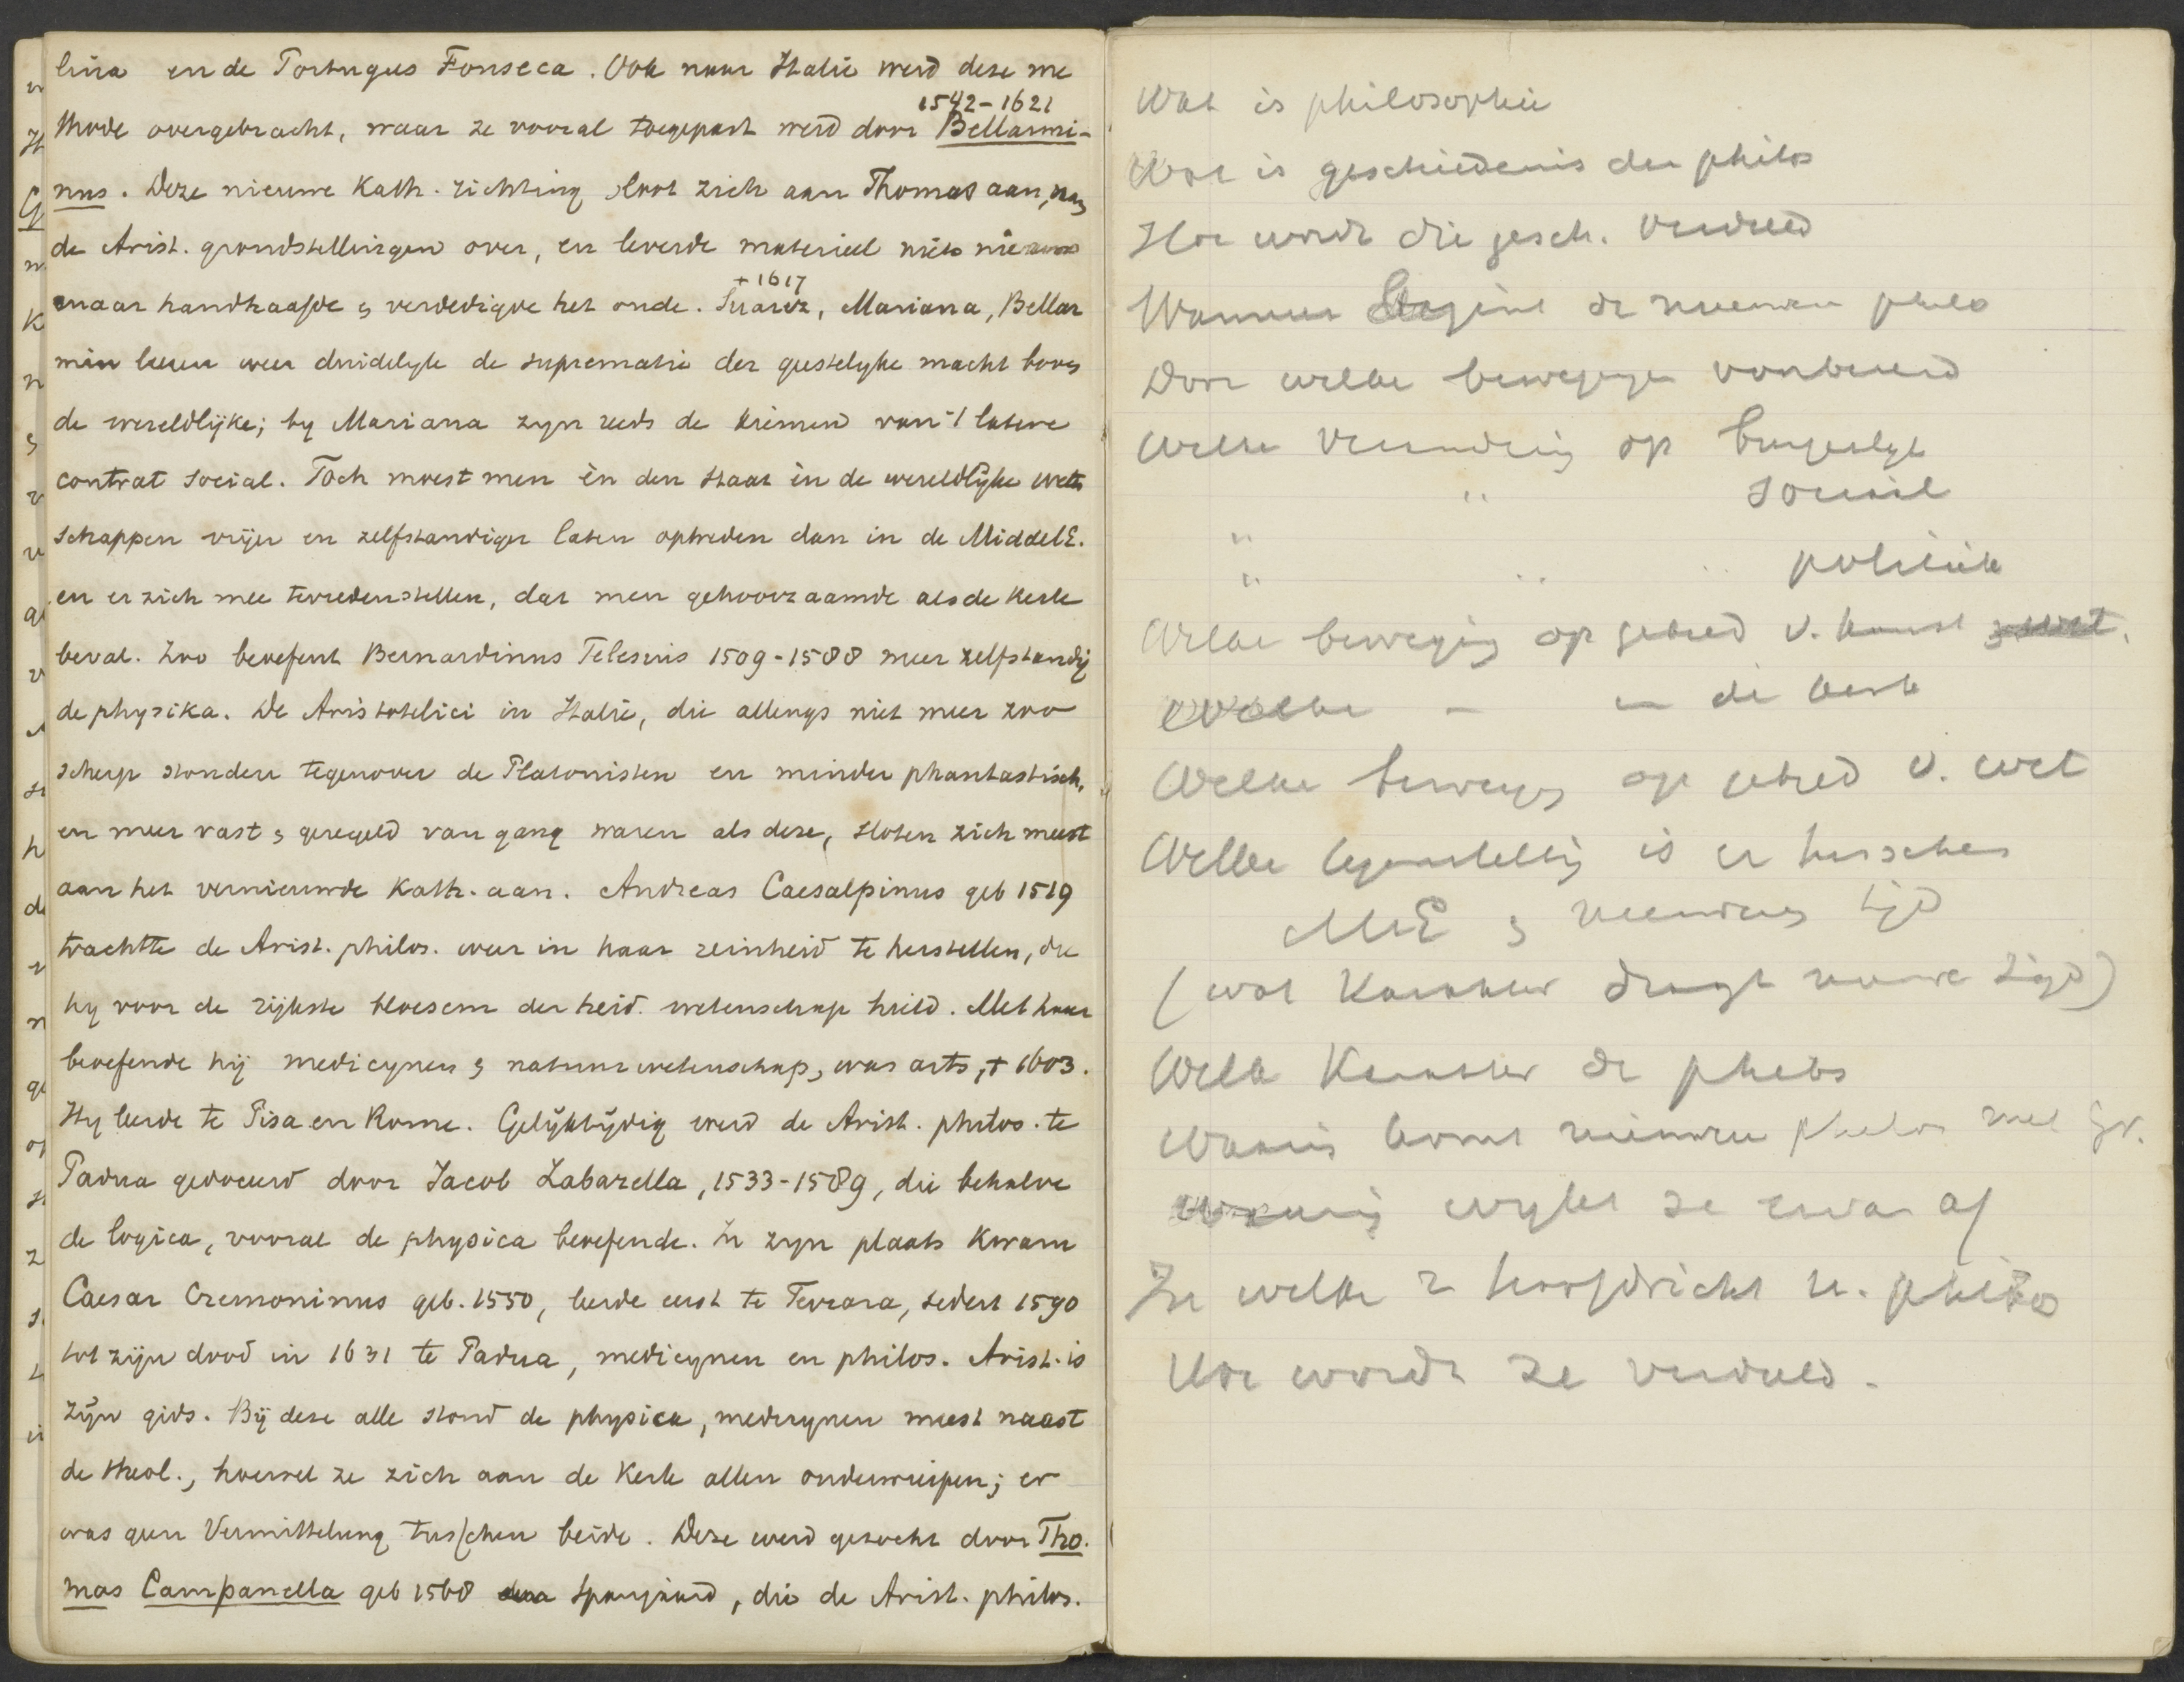 lina en de Portugees Fonseca. Ook naar Italie werd deze me
1542-1621
thode overgebracht, waar ze vooral toegepast werd door Bellarmi-
nus. Deze nieuwe Kath. richting sloot zich aan Thomas aan, nam
de Arist. grondstellingen over, en leverde materieel niets nieuws
+ 1617
maar handhaafde & verdedigde het oude. Suarez, Mariana, Bellar
min leeren weer duidelyk de suprematie der geestelyke macht boven
de wereldlijke; by Mariana zyn reeds de kiemen van 't latere
contrat social. Toch moest men èn den staat èn de wereldlijke weten
schappen vrijer en zelfstandiger laten optreden dan in de MiddelE.
en er zich mee tevredenstellen, dat men gehoorzaamde als de Kerk
beval. Zoo beoefent Bernardinus Telesius 1509-1588 meer zelfstandig
de physika. De Aristotelici in Italie, die allengs niet meer zoo
scherp stonden tegenover de Platonisten en minder phantastisch,
en meer vast & geregeld van gang waren als deze, sloten zich meest
aan het vernieuwde Kath. aan. Andreas Caesalpinus geb 1519
trachtte de Arist. philos. weer in haar reinheid te herstellen, die
hy voor de rijkste bloesem der heid. wetenschap hield. Met haar
beoefende hij medicynen & natuurwetenschap, was arts, + 1603.
Hy leerde te Pisa en Rome. Gelÿktÿdig werd de Arist. philos. te
Padua gedoceerd door Jacob Zabarella, 1533-1589, die behalve
de logica, vooral de physica beoefende. In zyn plaats kwam
Caesar Cremoninus geb. 1550, leerde eerst te Ferrara, sedert 1590
tot zijn dood in 1631 te Padua, medicynen en philos. Arist. is
zÿn gids. Bÿ deze alle stond de physica, medicynen meest naast
de theol., hoewel ze zich aan de Kerk allen onderwierpen; er
was geen Vermittelung tusschen beide. Deze werd gezocht door Tho.
mas Campanella geb 1568 Spanjaard, die de Arist. philos.
Wat is philosophie
Wat is geschiedenis der philos
Hoe wordt die gesch. verdeeld
Wanneer begint de nieuwere philo
Door welke bewegingen voorbereid
Welke verandering op burgerlyk
" sociaal
" " politiek
Welke beweging op gebied v. kunst & wet.
Welke – in de kerk
Welke beweging op gebied v. wet
Welke tegenstelling is er tusschen
ME & nieuwere tijd
(wat karakter draagt nieuwe tijd)
Welk karakter de philos
Waarin komt nieuwere philos met Gr.
Waarin wykt ze ervan af
In welke 2 hoofdricht n. philos
Hoe wordt ze verdeeld.